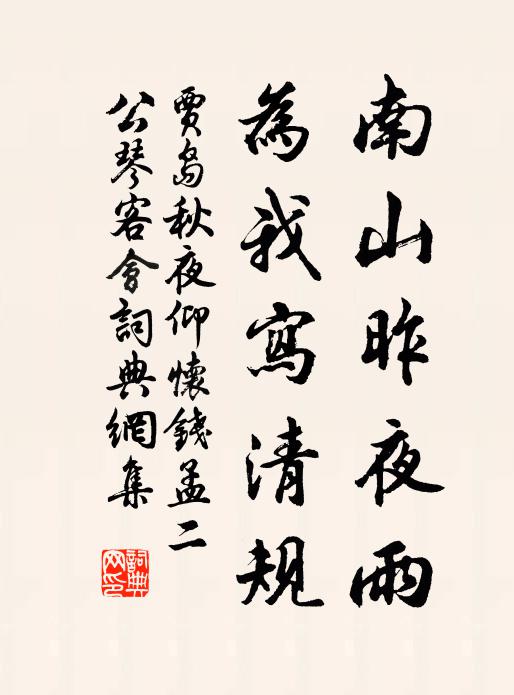 南山昨夜雨
為我寫清規
賈島秋夜仰懷錢孟二
公琴客會詞典網集
詞典
网印